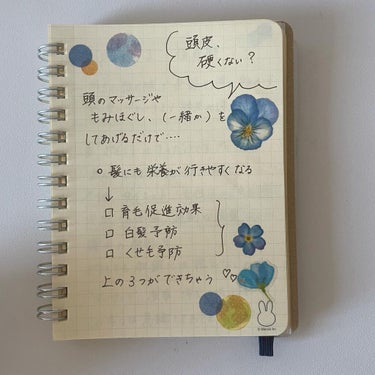 頭皮、
硬くない?
頭のマッサージや
もみほぐし、(一緒か)を
してあげるだけで‥‥
○ 髪にも栄養が行きやすくなる
↓
□ 育毛促進効果
□ 白髪予防
□ くせ毛予防
上の3つができちゃう♡♡